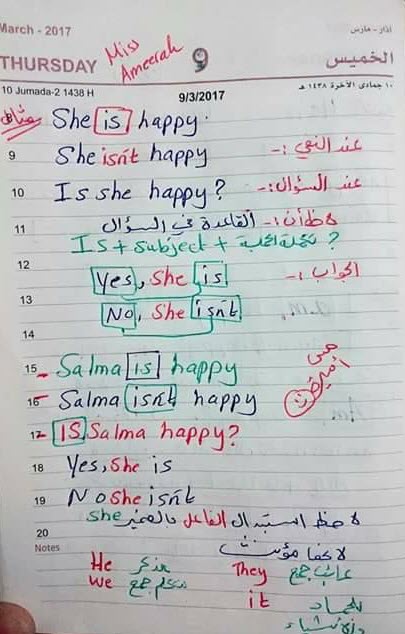 March - 2017
اذار - مارس
Miss
Ameerah
THURSDAY 9 الخميس
10 Jumada-2 1438 H 9/3/2017 ١٠ جمادى الآخرة ١٤٣٨ هـ
مثال She is happy.
9 She isn't happy عند النفي :-
10 Is she happy? عند السؤال :-
11 لاحظ أن :- القاعدة في السؤال
Is + subject + تكملة الجملة ?
12 Yes, She is الجواب :-
13 No, She isn't
14
15 Salma is happy
16 Salma isn't happy
مس
أميرة
17 IS Salma happy?
18 Yes, She is
19 No She isn't
20 لاحظ استبدال الفاعل بالضمير she
Notes لأنها مؤنث
He مذكر They غائب جمع
We متكلم جمع
it للجماد
والأشياء